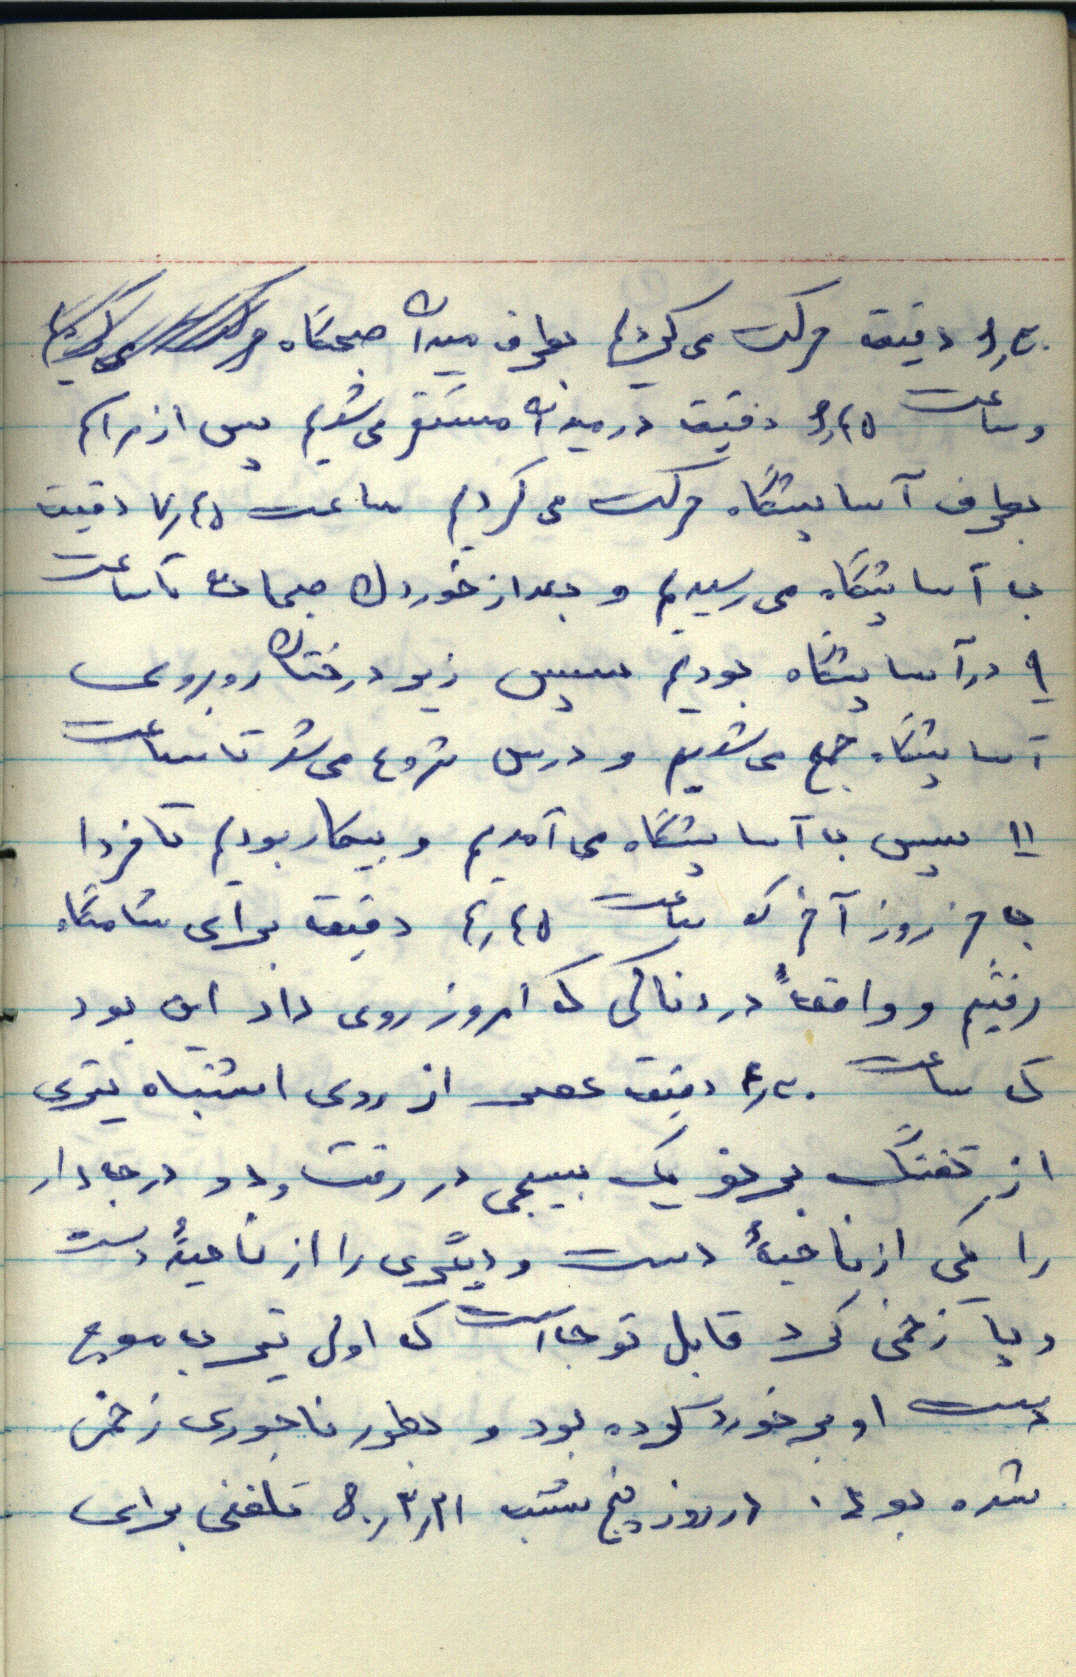 ۶٫۳۰ دقیقه حرکت می‌کردیم بطرف میدان صبحگاه
و ساعت ۶٫۴۵ دقیقه در میدان مستقر می‌شدیم پس از مراسم
بطرف آسایشگاه حرکت می‌کردیم ساعت ۷٫۴۵ دقیقه
به آسایشگاه می‌رسیدیم و بعد از خوردن صبحانه تا ساعت
۹ در آسایشگاه بودیم سپس زیر درختان روبروی
آسایشگاه جمع می‌شدیم و درس شروع می‌شد تا ساعت
۱۱ سپس به آسایشگاه می‌آمدیم و بیکار بودیم تا فردا
بجز روز آخر که ساعت ۴٫۴۵ دقیقه برای شامگاه
رفتیم و واقعهٔ دردناکی که امروز روی داد این بود
که ساعت ۴٫۳۰ دقیقه عصر از روی اشتباه تیری
از تفنگ برنو یک بسیجی در رفت و دو درجه‌دار
را یکی از ناحیهٔ دست و دیگری را از ناحیهٔ دست
و پا زخمی کرد قابل توجه است که اولی تیر به مچ
دست او برخورد کرده بود و بطور ناجوری زخمی
شده بود. در روز پنج‌شنبه ۳٫۳۱ تلفنی برای